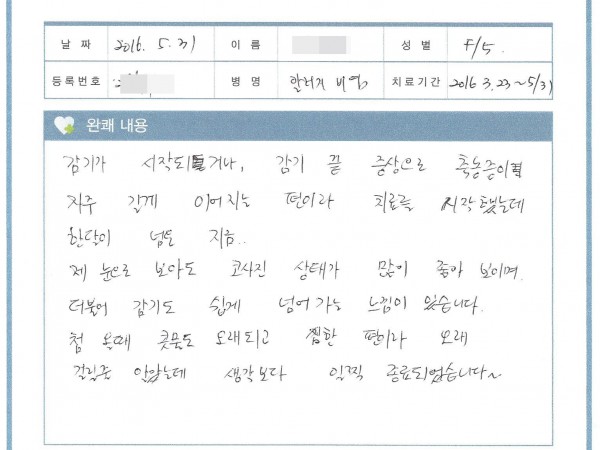 날 짜 2016. 5. 31 이 름 성 별 F/5.
등록번호 병 명 알러지 비염 치료기간 2016 3. 23 ~ 5/31
완쾌 내용
감기가 시작되거나, 감기 끝 증상으로 축농증이
자주 길게 이어지는 편이라 치료를 시작했는데
한달이 넘은 지금..
제 눈으로 보아도 코사진 상태가 많이 좋아 보이며.
더불어 감기도 쉽게 넘어가는 느낌이 있습니다.
첨 올때 콧물도 오래되고 찜한 편이라 오래
걸릴줄 알았는데 생각보다 일찍 종료되었습니다~